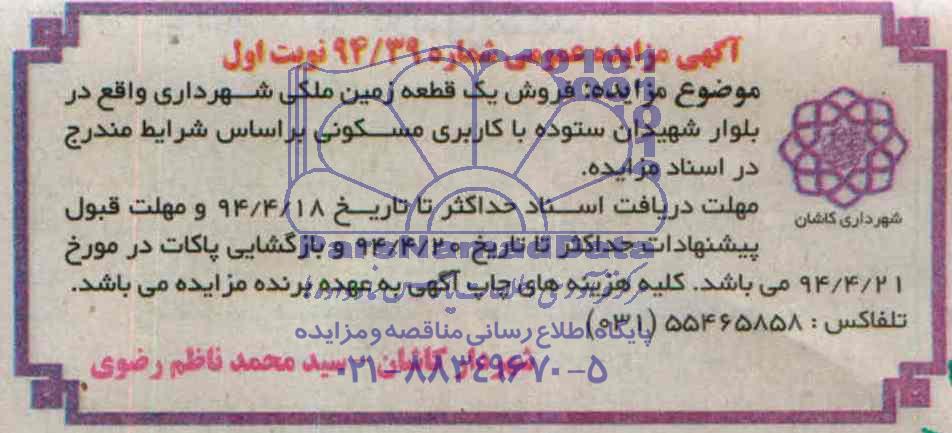 آگهی مزایده عمومی شماره ۹۴/۳۹ نوبت اول
موضوع مزایده: فروش یک قطعه زمین ملکی شهرداری واقع در
بلوار شهیدان ستوده با کاربری مسکونی براساس شرایط مندرج
در اسناد مزایده.
مهلت دریافت اسناد حداکثر تا تاریخ ۹۴/۴/۱۸ و مهلت قبول
پیشنهادات حداکثر تا تاریخ ۹۴/۴/۲۰ و بازگشایی پاکات در مورخ
۹۴/۴/۲۱ می باشد. کلیه هزینه های چاپ آگهی به عهده برنده مزایده می باشد.
تلفاکس : ۵۵۴۶۵۸۵۸ (۰۳۱)
شهردار کاشان - سید محمد ناظم رضوی
شهرداری کاشان
ParsNamadData
پایگاه اطلاع رسانی مناقصه و مزایده
۰۲۱-۸۸۳۴۹۶۷۰-۵